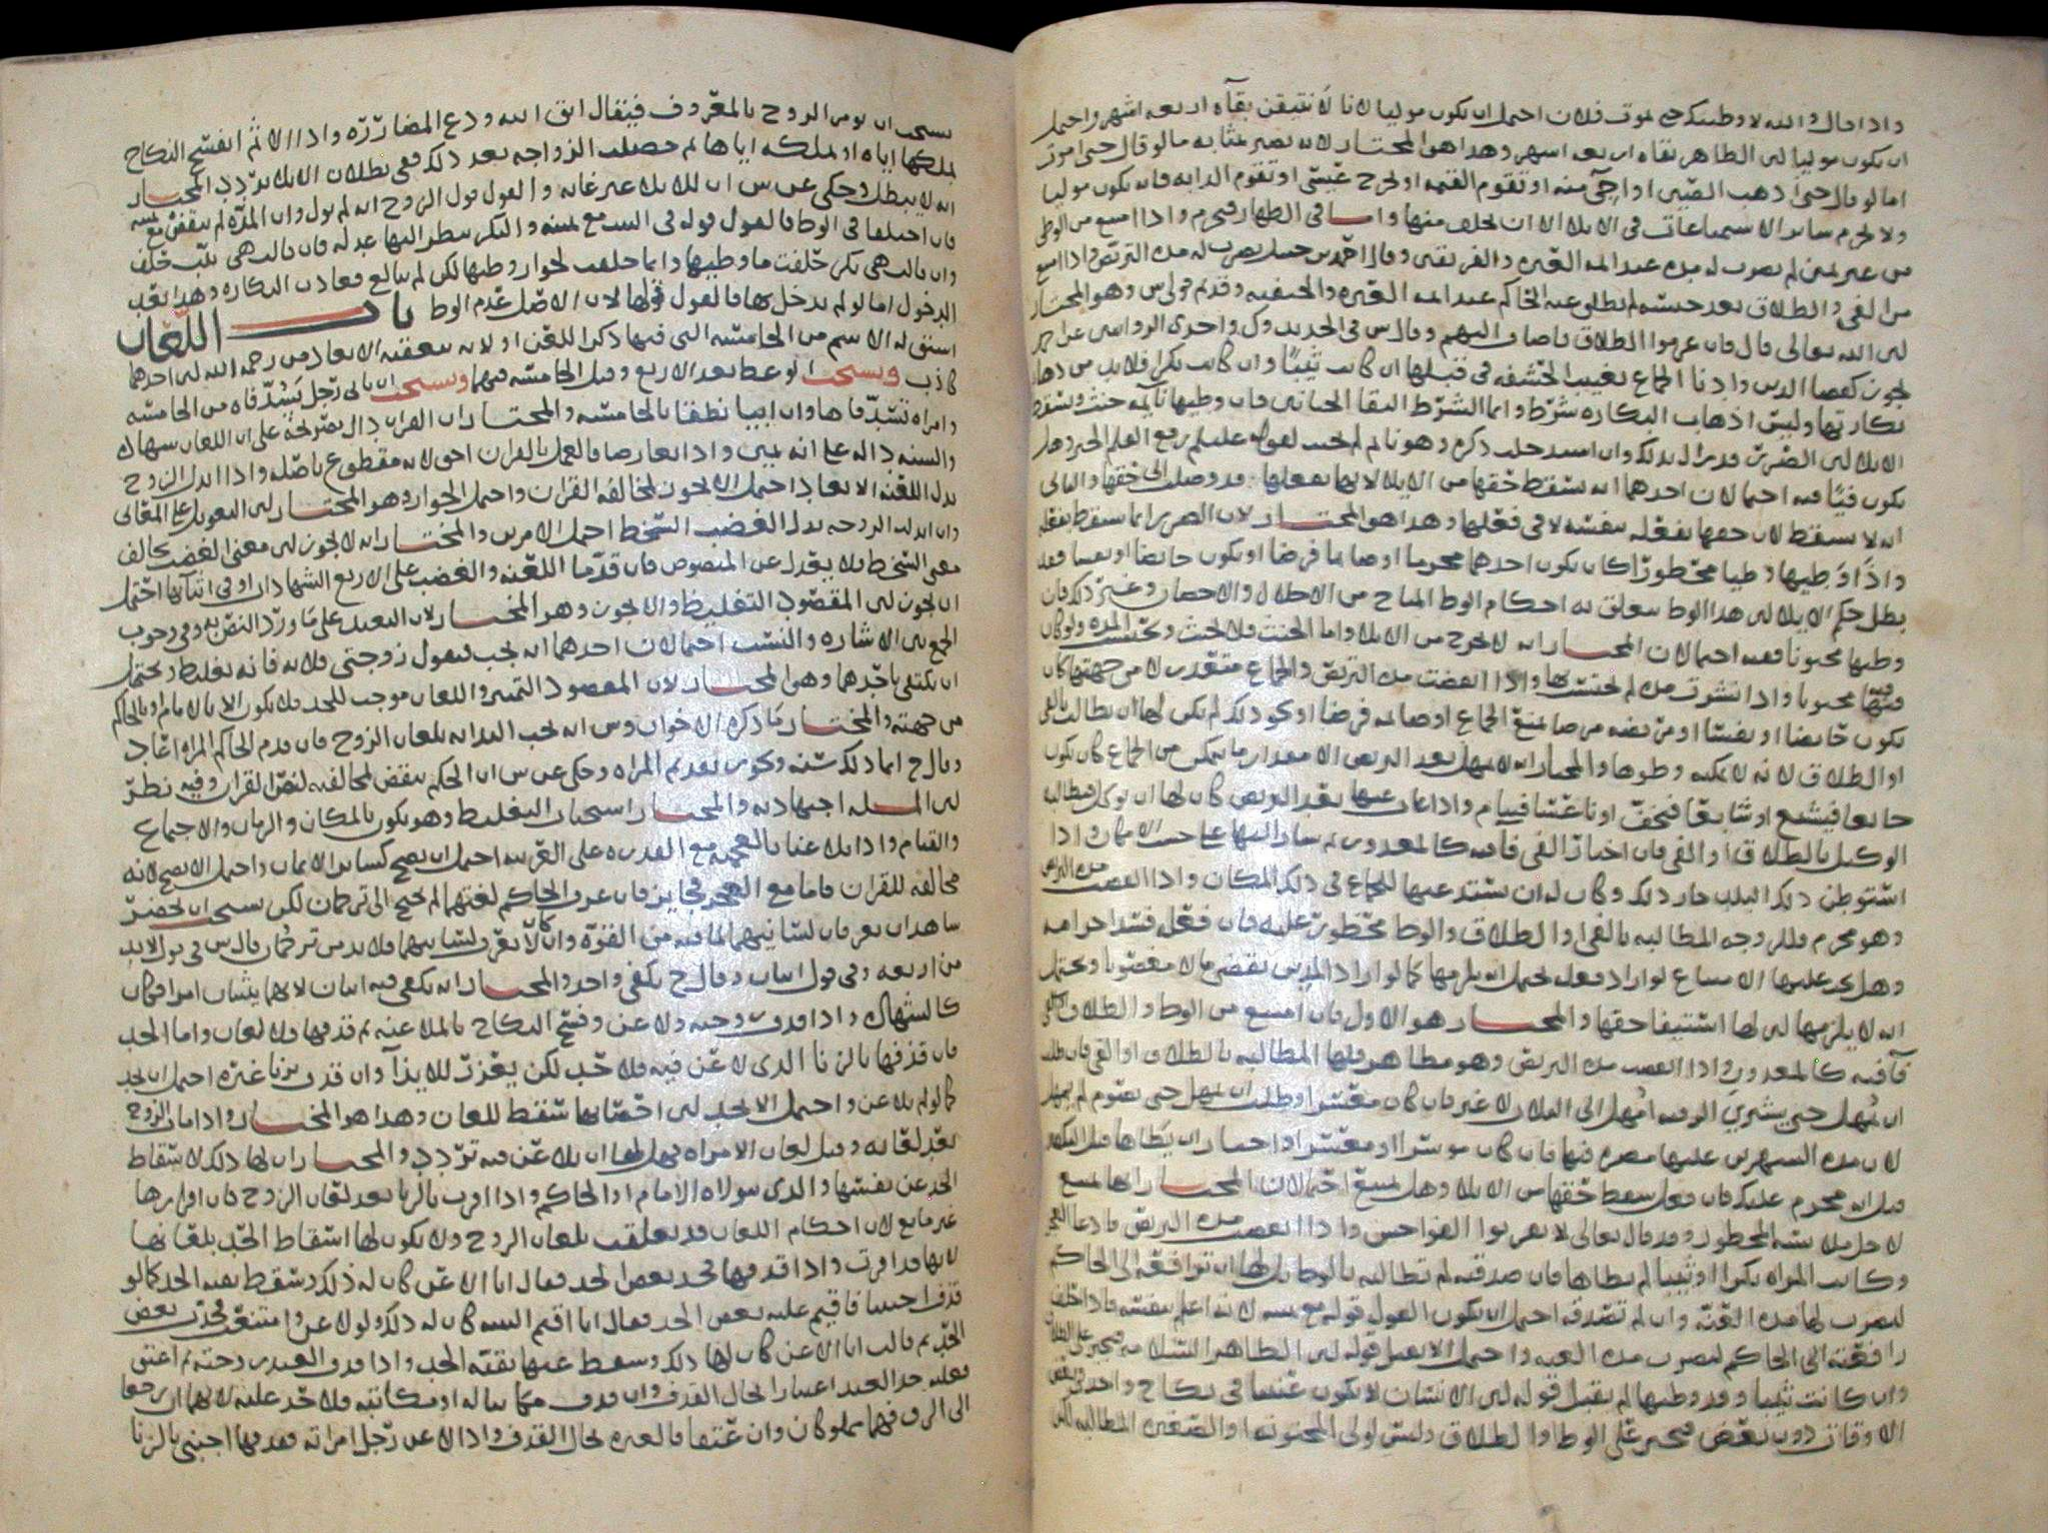 واذا قال والله لا وطيتك حتى يموت فلان احتمل ان يكون موليا لانا لا نتيقن بقاه اربعه اشهر واحتمل
ان يكون موليا لان الظاهر بقاه اربعه اشهر وهذا هو المختار لانه يصير بمثابه ما لو قال حتى اموت
اما لو قال حتى اذهب الصين او اجي منه او تقوم القيمه او يخرج عيسى او تقوم الدابه فانه يكون موليا
ولا يحرم سائر الاستمتاعات في الايلا الا ان يحلف منها واما في الظهار فيحرم واذا امتنع من الوطي
من غير يمين لم يضرب له مده عند ائمه العتره والفريقين وقال احمد بن حنبل يضرب له مده التربص واذا امتنع
من الفي والطلاق بعد حبسه لم يطلق عنه الحاكم عند ائمه العتره والحنفيه وقديم قولي س وهو المختار
لان الله تعالى قال فان عزموا الطلاق فاضاف اليهم وقال س في الجديد وك واحدى الروايتين عن احمد
بكارتها وليس اذهاب البكاره شرط وانما الشرط التقا الختانين فان وطيها نايمه حنث وسقط
الايلا لان الضرر قد زال بذلك وان استدخلت ذكره وهو نائم لم يحنث لقوله عليلم رفع القلم الخبر وهل
يكون فيا فيه احتمالان احدهما انه يسقط حقها من الايلا لانها بفعلها قد وصلت الى حقها والثاني
انه لا يسقط لان حقها بفعله بنفسه لا في فعلها وهذا هو المختار لان الضرر انما يسقط بفعله
واذا وطيها وطيا محظورا كان يكون احدهما محرما او صايما فرضا او تكون حايضا او نفسا فقد
بطل حكم الايلا لان هذا الوطا تعلق به احكام الوطا المباح من الاحلال والاحصان وغير ذلك فان
وطيها مجنونا ففيه احتمالان المختار انه لا يخرج من الايلا واما الحنث فلا يحنث
تكون حايضا او نفسا او مريضه مرضا يمنع الجماع او صايمه فرضا او نحو ذلك لم يكن لها ان تطالب بالفي
او الطلاق لانه لا يمكنه وطوها والمختار انه لا يمهل بعد التربص الا مقدار ما يتمكن من الجماع كان يكون
جايعا فيشبع او شابعا فيخف او ناعسا فينام واذا غاب عنها بعد التربص كان لها ان توكل فيطالبه
الوكيل بالطلاق او الفي فان اختار الفي فافيه كالمعذور ثم سار اليها على حسب الامكان واذا
استوطن ذلك البلد جاز ذلك وكان له ان يستدعيها للجماع في ذلك المكان واذا انقضت مده التربص
وهو محرم فللزوجه المطالبه بالفي او الطلاق والوطا محظور عليه فان فعل فسد احرامه
وهل يحل عليها الامتناع لو اراد فعله يحتمل انه يلزمها كما لو اراد المدين يقضي مالا مغصوبا ويحتمل
انه لا يلزمها لان لها استيفا حقها والمختار هو الاول فان امتنع من الوطا والطلاق
فافيه كالمعذور واذا انقضت مده التربص وهو مظاهر فلها المطالبه بالطلاق او الفي فان طلب
ان يمهل حتى يشتري الرقبه امهل الى الثلاث لا غير فان كان معسرا وطلب ان يمهل حتى يصوم لم يمهل
لان مده الشهرين عليها مضره فيها فان كان موسرا او معسرا واختار ان يطاها قبل التكفير
قيل انه محرم عليك فان فعل سقط حقها من الايلا وهل تمنع احتمالان المختار انها تمنع
وكانت المراه بكرا او ثيبا لم يطاها فان صدقته لم تطالبه بالوطا بل لها ان ترافعه الى الحاكم
ليضرب لها مده العنه وان لم تصدقه احتمل ان يكون القول قوله مع يمينه لانه اعلم بنفسه فاذا حلف
رافعته الى الحاكم ليضرب مده العنه واحتمل الا يقبل قوله لان الظاهر السلامه فيجبر على الطلاق
وان كانت ثيبا وقد وطيها لم يقبل قوله لان الانسان لا يكون عنينا في نكاح واحد في بعض
الاوقات دون بعض فيجبر على الوطا او الطلاق وليس لولي المجنونه او الصغيره المطالبه
يستحب ان يومر الزوج بالمعروف فيقال اتق الله ودع المضارره واذا الا ثم انفسخ النكاح
بملكها اياه او بملكه اياها ثم حصلت الزواجه بعد ذلك ففي بطلان الايلا تردد المختار
انه لا يبطل وحكي عن س ان للايلا عبر غايه والقول قول الزوج انه لم يول وان المده لم تنقض مع يمينه
فان اختلفا في الوطا فالقول قوله في الثيب مع يمينه والبكر ينظر اليها عدله فان قالت هي ثيب حلف
وان قالت هي بكر حلفت ما وطيها وانما حلفت لجواز وطيها لكن لم يبالغ فعادت البكاره وهذا بعد
الدخول اما لو لم يدخل بها فالقول قولها لان الاصل عدم الوطا باب اللعان
اشتق له الاسم من الخامسه التي فيها ذكر اللعن او لانه يتعقبه الابعاد من رحمه الله لان احدهما
كاذب ويستحب الوعظ بعد الاربع وقبل الخامسه فيهما ويستحب ان ياتي رجل يسد فاه من الخامسه
وامراه تسد فاها وان ابيا نطقا بالخامسه والمختار ان القران دال بصريحه على ان اللعان شهاده
والسنه داله على انه يمين واذا تعارضا فالعمل بالقران احق لانه مقطوع باصله واذا ابدل الزوج
بدل اللعنه الابعاد احتمل الا يجوز لمخالفه القران واحتمل الجواز وهو المختار لان التعويل على المعاني
وان ابدلت الزوجه بدل الغضب السخط احتمل الامرين والمختار انه لا يجوز لان معنى الغضب يخالف
معنى السخط فلا يعدل عن المنصوص فان قدما اللعنه والغضب على الاربع الشهادات او في اثنائها احتمل
ان يجوز لان المقصود التغليظ والا يجوز وهو المختار لان التعبد على ما ورد النص به وفي وجوب
الجمع بين الاشاره والنسب احتمالان احدهما انه يجب فيقول زوجتي فلانه فانه تغليظ ويحتمل
ان يكتفى باحدهما وهو المختار لان المقصود التمييز واللعان موجب للحد فلا يكون الا بالامام او بالحاكم
من جهته والمختار ما ذكره الاخوان وس انه يجب البدايه بلعان الزوج فان قدم الحاكم المراه اعاد
وقال ح انما ذلك سنه ويجوز تقديم المراه وحكي عن س ان الحكم ينقض لمخالفته لنص القران وفيه نظر
لان المسله اجتهاديه والمختار استحباب التغليظ وهو يكون بالمكان والزمان والاجتماع
والقيام واذا تلاعنا بالعجميه مع القدره على العربيه احتمل ان يصح كسائر الايمان واحتمل الا يصح لانه
مخالفه للقران فاما مع العجز فجايز فان عرف الحاكم لغتهما لم يحتج الى ترجمان لكن يستحب ان يحضر
شاهدان يعرفان لسانيهما لما فيه من القوه وان كان لا يعرف لسانيهما فلا بد من ترجمان قال س في قول لا بد
من اربعه وفي قول اثنان وقال ح يكفي واحد والمختار انه يكفي فيه اثنان لانهما يثبتان امرا فكان
كالشهاده واذا قذف زوجته ولاعن وفسخ النكاح بالملاعنه ثم قذفها فلا لعان واما الحد
فان قذفها بالزنا الذي لاعن فيه فلا حد لكن يعزر للايذا وان قذف بزنا غيره احتمل ان يحد
كما لو لم يلاعن واحتمل الا يحد لان احصانها سقط للعان وهذا هو المختار واذا مات الزوج
بعد لعانه وقبل لعان الامراه فهل لها ان تلاعن فيه تردد والمختار ان لها ذلك لاسقاط
الحد عن نفسها والذي يتولاه الامام او الحاكم واذا اقرت بالزنا بعد لعان الزوج فان اقرارها
غير مانع لان احكام اللعان قد تعلقت بلعان الزوج ولا يكون لها اسقاط الحد بلعانها
لانها قد اقرت واذا قذفها فحد بعض الحد فقال انا الاعن كان له ذلك وسقط بقيه الحد كما لو
قذف اجنبيا فاقيم عليه بعض الحد فقال انا اقيم البينه كان له ذلك ولو لاعن وامتنعت فحدت بعض
الحد ثم قالت انا الاعن كان لها ذلك وسقط عنها بقيه الحد واذا قذف العبد زوجته ثم اعتق
فعليه حد العبد اعتبارا لحال القذف وان قذف مكاتبا له او مكاتبته فلا حد عليه لانهما ان رجعا
الى الرق فهما مملوكان وان عتقا فالعبره بحال القذف واذا لاعن رجل امراته فقذفها اجنبي بالزنا